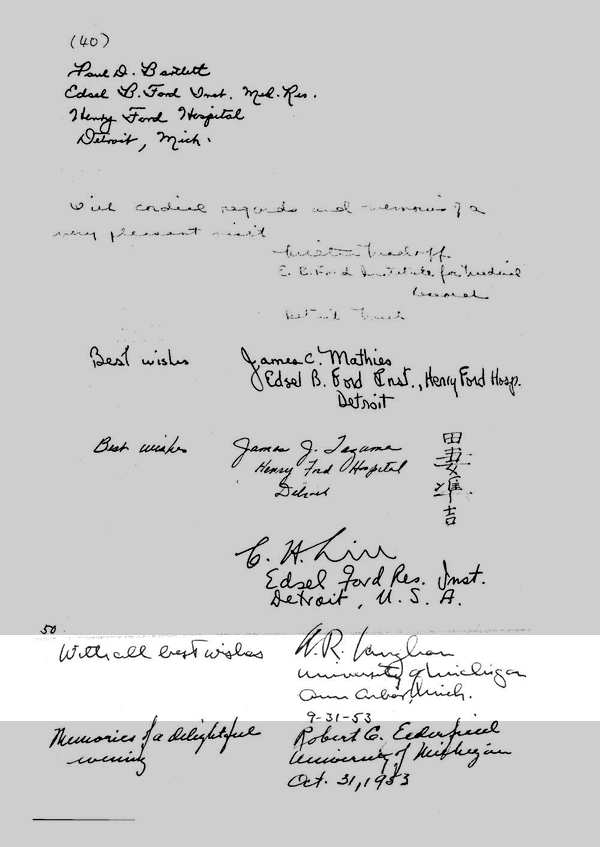 (40)
Paul D. Bartlett
Edsel B. Ford Inst. Med. Res.
Henry Ford Hospital
Detroit, Mich.
With cordial regards and memories of a
very pleasant visit
E. B. Ford Institute for Medical
Research
Detroit Mich
Best wishes James C. Mathies
Edsel B. Ford Inst., Henry Ford Hosp.
Detroit
Best wishes James J. Tazuma
Henry Ford Hospital
Detroit
田
準
吉
C. H. Li
Edsel Ford Res. Inst.
Detroit, U. S. A.
50
With all best wishes W. R. Vaughan
University of Michigan
Ann Arbor, Mich.
9-31-53
Memories of a delightful Robert C. Elderfield
evening University of Michigan
Oct. 31, 1953